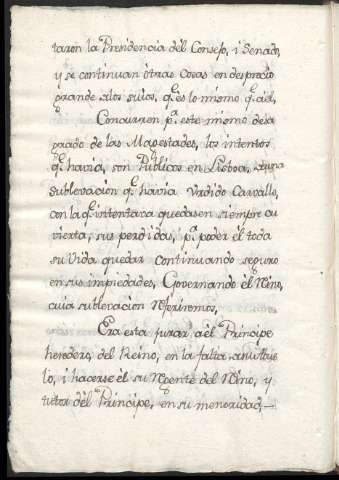 taron la Presidencia dèl Consejo, i Senado,
y se continuan ôtras Cosas en desprecio
grande à los suios, q.e es lo mismo q.e
Concurren p.a este mismo desa
grado de las Magestades, los intentos
q.e havia, son Publicos en Lisboa,
Sublevacion q.e havia Vrdido Carvallo,
con la q.e intentava quedasen siempre cu
viertas, sus perdidas, p.a poder èl toda
su Vida quedar Continuando seguro
en sus impiedades, Governando èl Rno,
cuia sublevacion Referiremos,
Era esta jurar àèl Principe
heredero, del Reino, en la falta,
lo, i hacerse èl su Regente del Rno, y
tutor dèl Principe, en su menoridad,—